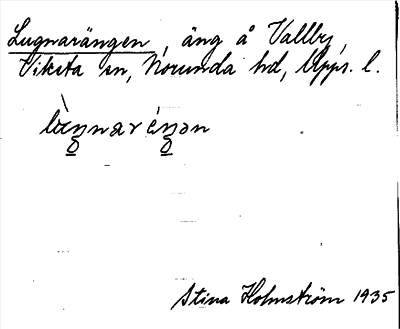 Lugnarängen, äng å Vallby,
Viksta sn, Norunda hd, Upps. l.
Stina Holmström 1935